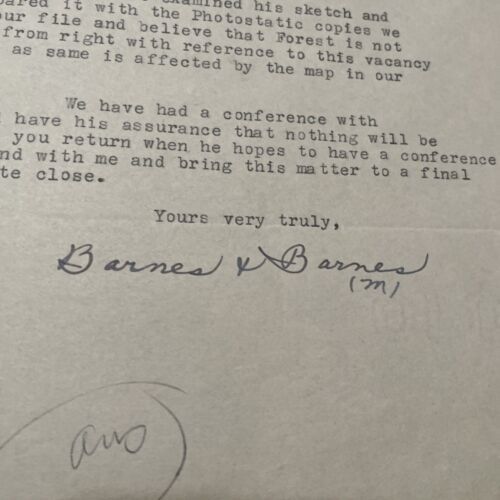 examined his sketch and
ared it with the Photostatic copies we
our file and believe that Forest is not
from right with reference to this vacancy
as same is affected by the map in our
We have had a conference with
have his assurance that nothing will be
you return when he hopes to have a conference
nd with me and bring this matter to a final
te close.
Yours very truly,
Barnes & Barnes
(M)
ans